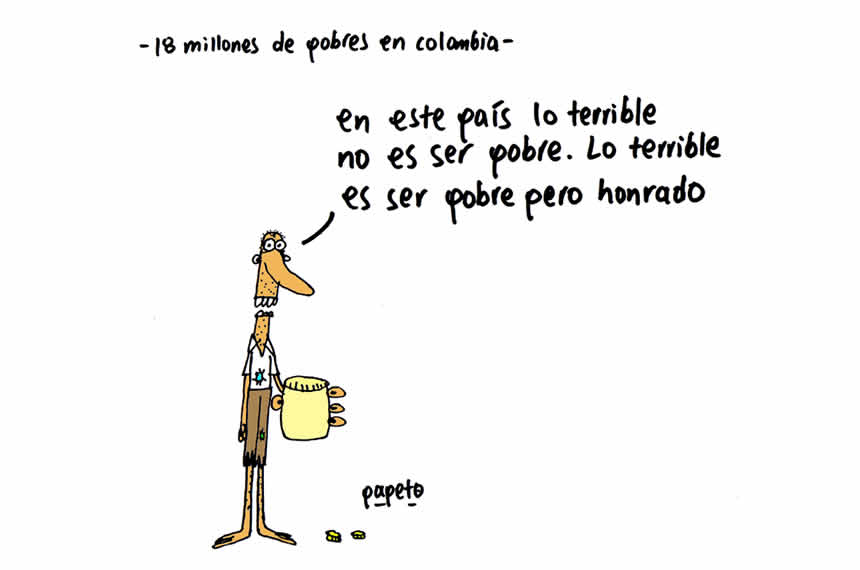 -18 millones de pobres en colombia-
en este país lo terrible
no es ser pobre. Lo terrible
es ser pobre pero honrado
papeto